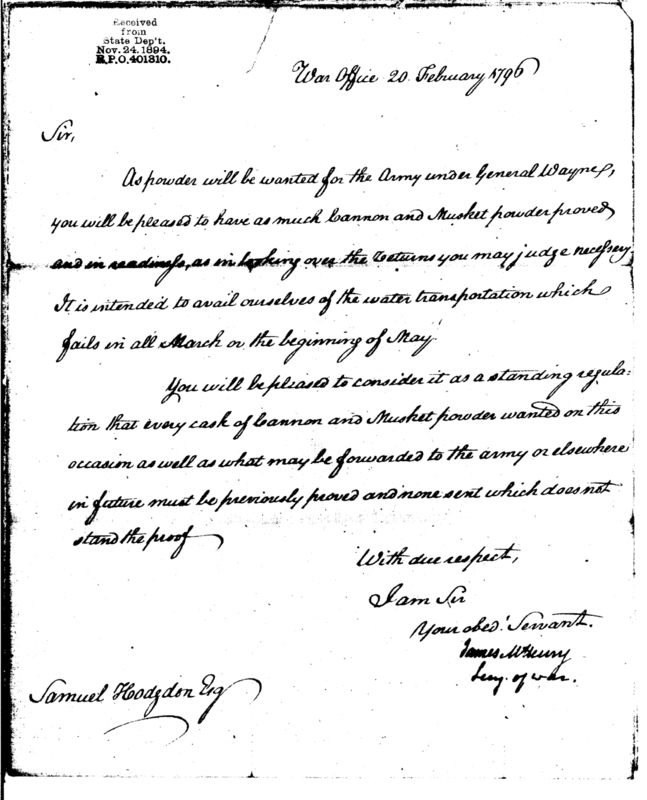 Received
from
State Dep't.
Nov. 24. 1894.
R.P.O. 401310.
War Office 20. February 1796
Sir,
As powder will be wanted for the Army under General Wayne,
you will be pleased to have as much Cannon and Musket powder proved
and in readiness, as in looking over the returns you may judge necessary
It is intended to avail ourselves of the water transportation which
fails in all March or the beginning of May.
You will be pleased to consider it as a standing regula-
tion that every cask of Cannon and Musket powder wanted on this
occasion as well as what may be forwarded to the army or elsewhere
in future must be previously proved and none sent which does not
stand the proof
With due respect,
I am Sir
Your obed.t Servant.
James McHenry
Secy. of war.
Samuel Hodgdon Esq